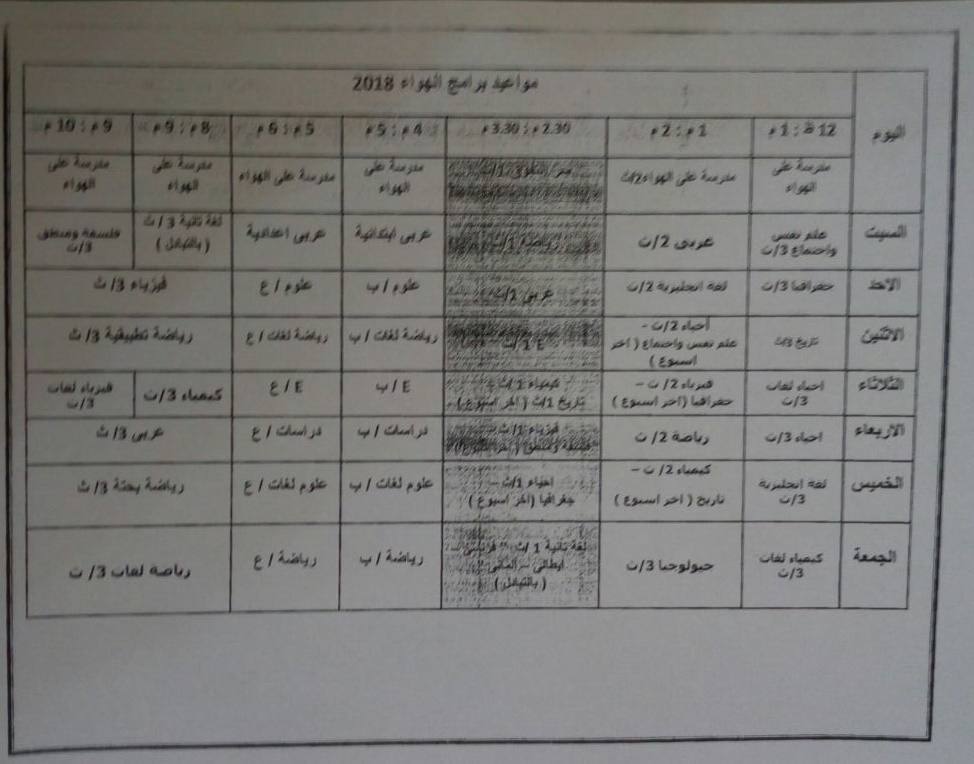 مواعيد برامج الهواء 2018
اليوم
12 ظ : 1 م
1 م : 2 م
2.30 م : 3.30 م
4 م : 5 م
5 م : 6 م
8 م : 9 م
9 م : 10 م
مدرسة على
الهواء
مدرسة على الهواء 2/ث
مدرسة على
الهواء
مدرسة على الهواء
مدرسة على
الهواء
مدرسة على
الهواء
السبت
علم نفس
واجتماع 3/ث
عربى 2/ث
رياضة 1/ث
عربى ابتدائية
عربى اعدادية
لغة ثانية 3 / ث
( بالتبادل )
فلسفة ومنطق
3/ث
الاحد
جغرافيا 3/ث
لغة انجليزية 2/ث
عربى 1/ث
علوم / ب
علوم / ع
فيزياء 3/ ث
الاثنين
تاريخ 3/ث
أحياء 2/ث –
علم نفس واجتماع ( اخر
اسبوع )
E 1/ث
رياضة لغات / ب
رياضة لغات / ع
رياضة تطبيقية 3/ ث
الثلاثاء
احياء لغات
3/ث
فيزياء 2/ ث –
جغرافيا (اخر اسبوع )
كيمياء 1/ث –
تاريخ 1/ث ( اخر اسبوع )
E / ب
E / ع
كيمياء 3/ث
فيزياء لغات
3/ث
الاربعاء
احياء 3/ث
رياضة 2/ ث
فيزياء 1/ث –
فلسفة ومنطق (اخر اسبوع)
دراسات / ب
دراسات / ع
عربى 3/ ث
الخميس
لغة انجليزية
3/ث
كيمياء 2/ ث –
تاريخ ( اخر اسبوع )
احياء 1/ث –
جغرافيا (اخر اسبوع )
علوم لغات / ب
علوم لغات / ع
رياضة بحتة 3/ ث
الجمعة
كيمياء لغات
3/ث
جيولوجيا 3/ث
لغة ثانية 1 /ث – فرنسى –
ايطالى – المانى
( بالتبادل )
رياضة / ب
رياضة / ع
رياضة لغات 3/ ث